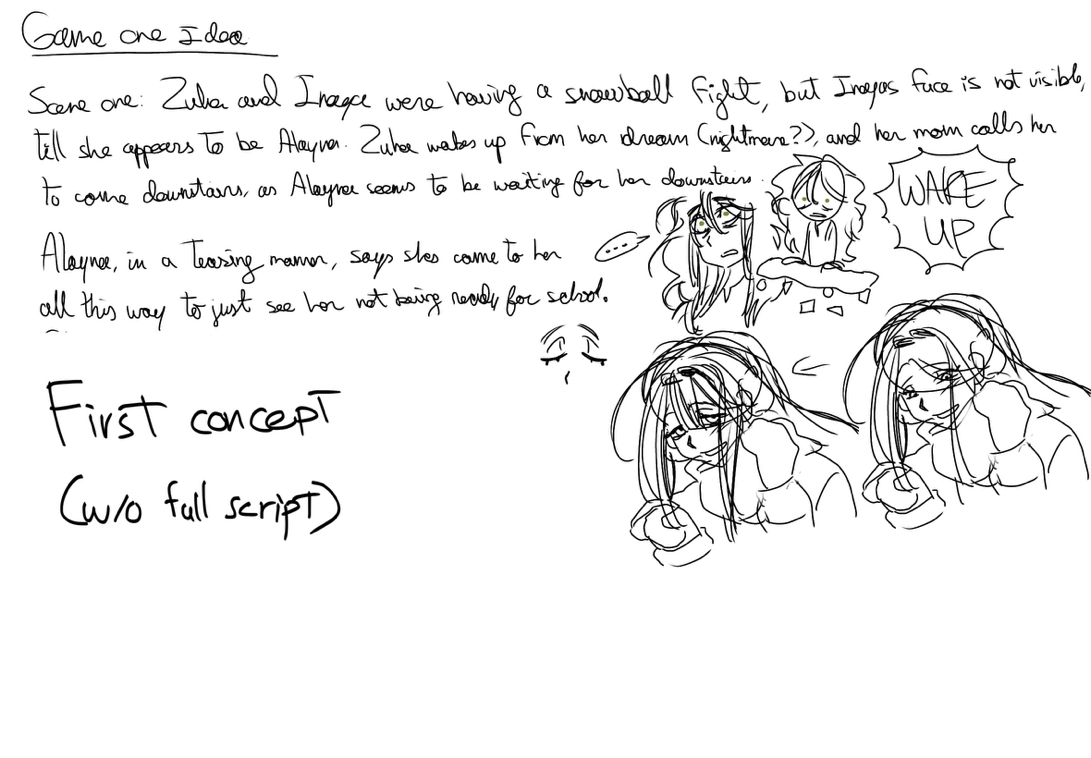 Game one Idea
Scene one: Zuha and Inaya were having a snowball fight, but Inayas face is not visible,
till she appears to be Alayna. Zuha wakes up from her dream (nightmare??), and her mom calls her
to come downstairs, as Alayna seems to be waiting for her downstairs.
WAKE
UP
...
Alayna, in a teasing manner, says shes come to her
all this way to just see her not being ready for school.
First concept
(w/o full script)